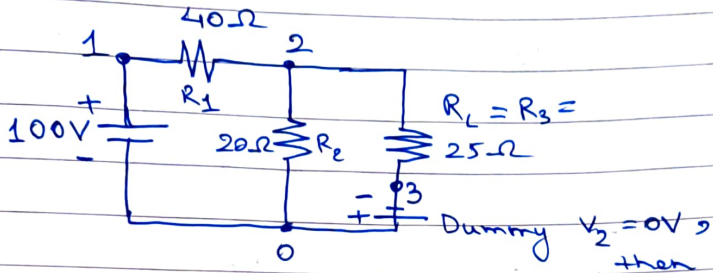 40Ω
1
2
R1
+
100V
-
20Ω R2
RL = R3 =
25Ω
3
-
+
Dummy V2 = 0V,
then
0